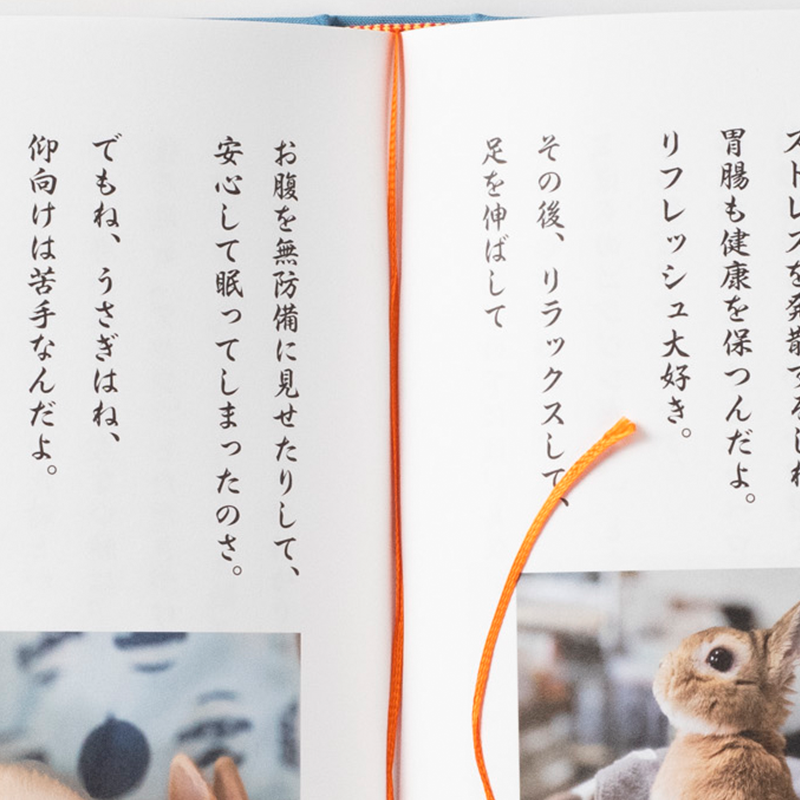 胃腸も健康を保つんだよ。
リフレッシュ大好き。
その後、リラックスして、
足を伸ばして
お腹を無防備に見せたりして、
安心して眠ってしまったのさ。
でもね、うさぎはね、
仰向けは苦手なんだよ。